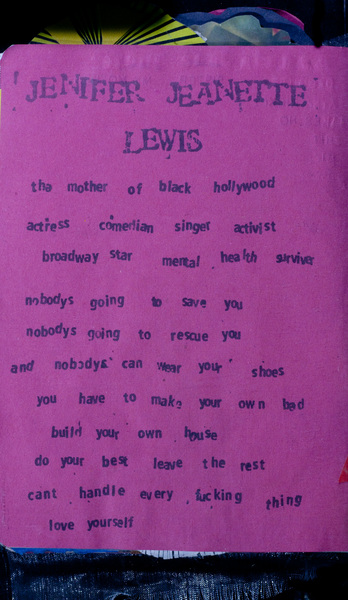 JENIFER JEANETTE
LEWIS
the mother of black hollywood
actress comedian singer activist
broadway star mental health surviver
nobodys going to save you
nobodys going to rescue you
and nobodys can wear your shoes
you have to make your own bed
build your own house
do your best leave the rest
cant handle every fucking thing
love yourself